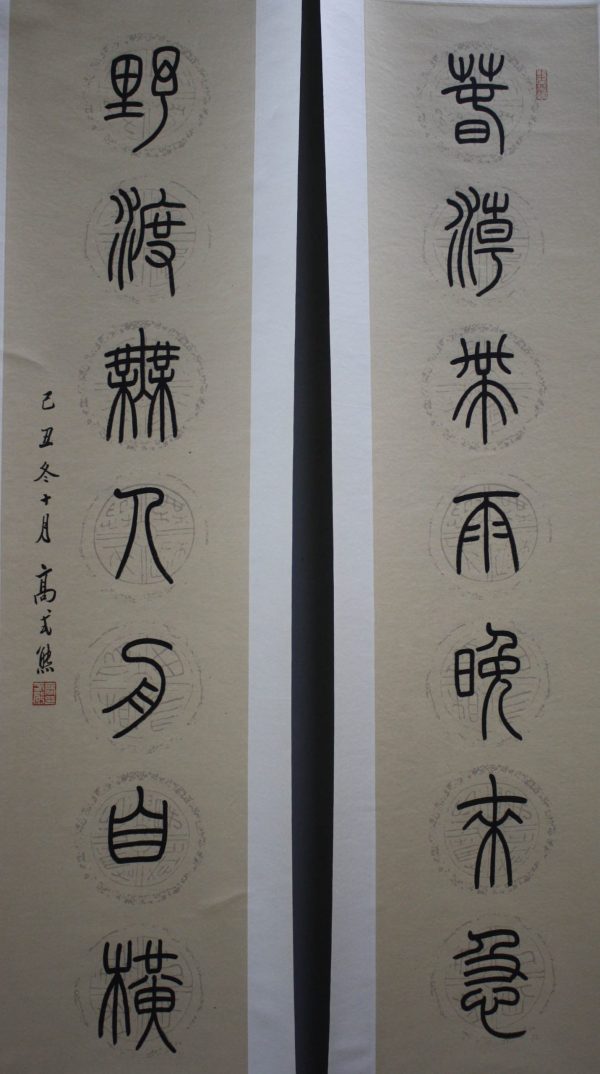 春潮帶雨晚來急
野渡無人舟自橫
己丑冬十月 高式熊